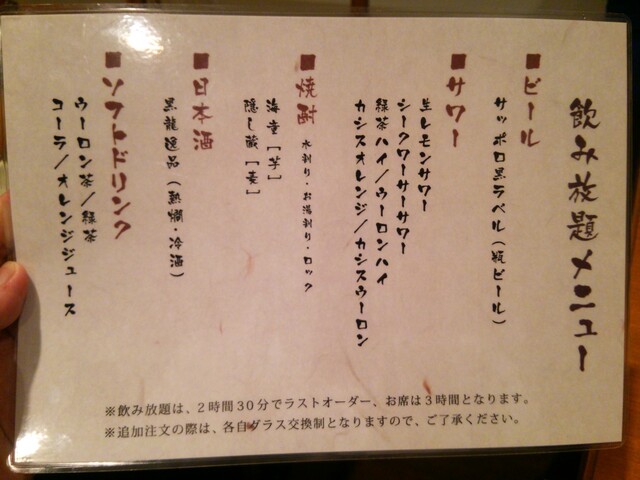 飲み放題メニュー
■ビール
サッポロ黒ラベル（瓶ビール）
■サワー
生レモンサワー
シークワーサーサワー
緑茶ハイ／ウーロンハイ
カシスオレンジ／カシスウーロン
■焼酎 水割り・お湯割り・ロック
海童［芋］
隠し蔵［麦］
■日本酒
黒龍逸品（熱燗・冷酒）
■ソフトドリンク
ウーロン茶／緑茶
コーラ／オレンジジュース
※飲み放題は、２時間３０分でラストオーダー、お席は３時間となります。
※追加注文の際は、各自グラス交換制となりますので、ご了承ください。